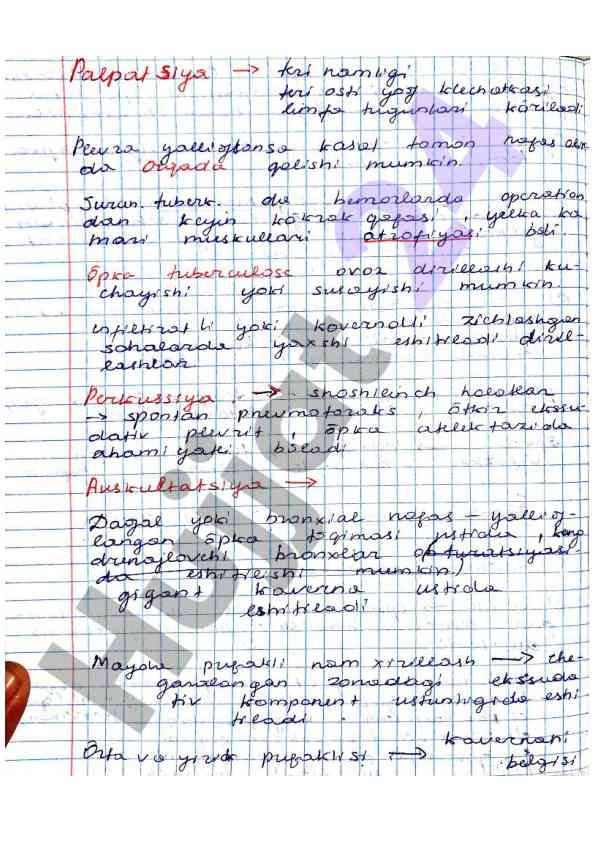 Palpatsiya → teri namligi
teri osti yog klechatkasi
limfa tugunlari köriladi
Plevra yalliglansa kasal tomon nafas olish
da orqada qolishi mumkin.
Surun. tuberk. da bemorlarda operatsion
dan keyin kökrak qafasi, yelka ka
mari muskullari atrofiyasi böli.
Öpka tuberculose ovoz dirillashi ku-
chayishi yoki susayishi mumkin.
infiltratli yoki kavernalli zichlashgan
sohalarda yaxshi eshitiladi diril-
lashlar
Perkussiya → shoshilinch holatlar
→ spontan pnevmotoraks, ötkir ekssu-
dativ plevrit, öpka atelektazida
ahamiyatli böladi
Auskultatsiya →
Dagal yoki bronxial nafas – yallig-
langan öpka töqimasi ustida, keng
drenajlovchi bronxlar obturatsiyasi
da eshitilishi mumkin)
gigant kaverna ustida
eshitiladi.
Mayda pufakli nam xirillash → che-
garalangan zonadagi ekssuda
tiv komponent ustunligida eshi
tiladi.
Örta va yirik pufaklisi → kavernani
belgisi
Hujjat 24